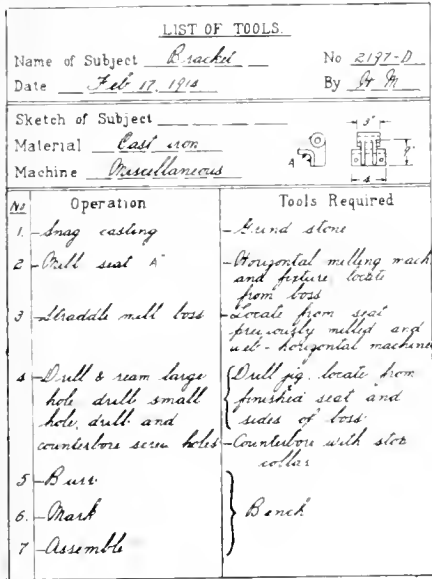 LIST OF TOOLS.
Name of Subject Bracket No 2197-D
Date Feb 17, 1914 By H M
Sketch of Subject
Material Cast iron
Machine Miscellaneous
3"
A
4
No Operation Tools Required
1. -Snag casting -Grind stone
2 -Mill seat "A" -Horizontal milling mach
and fixture locate
from boss
3 -Straddle mill boss -Locate from seat
previously milled and
web - horizontal machine
4 -Drill & ream large Drill jig, locate from
hole, drill small finished seat and
hole, drill and sides of boss.
counterbore screw holes -Counterbore with stop
collar
5 -Burr
6. -Mark Bench
7 -Assemble